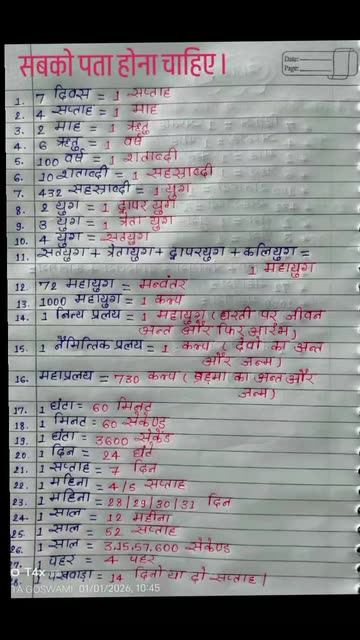 सबको पता होना चाहिए।
Date:
Page:
1. 7 दिवस = 1 सप्ताह
2. 4 सप्ताह = 1 माह
3. 2 माह = 1 ऋतु
4. 6 ऋतु = 1 वर्ष
5. 100 वर्ष = 1 शताब्दी
6. 10 शताब्दी = 1 सहस्राब्दी
7. 432 सहस्राब्दी = 1 युग
8. 2 युग = 1 द्वापर युग
9. 3 युग = 1 त्रेता युग
10. 4 युग = सतयुग
11. सतयुग + त्रेतायुग + द्वापरयुग + कलियुग =
1 महायुग
12. 72 महायुग = मन्वंतर
13. 1000 महायुग = 1 कल्प
14. 1 नित्य प्रलय = 1 महायुग (धरती पर जीवन
अन्त और फिर आरंभ)
15. 1 नैमित्तिक प्रलय = 1 कल्प (देवों का अन्त
और जन्म)
16. महाप्रलय = 730 कल्प (ब्रह्मा का अन्त और
जन्म)
17. 1 घंटा = 60 मिनट
18. 1 मिनट = 60 सेकेण्ड
19. 1 घंटा = 3600 सेकेंड
20. 1 दिन = 24 घंटे
21. 1 सप्ताह = 7 दिन
22. 1 महिना = 4/5 सप्ताह
23. 1 महिना = 28/29/30/31 दिन
24. 1 साल = 12 महीना
25. 1 साल = 52 सप्ताह
26. 1 साल = 3,15,57,600 सेकेण्ड
27. पहर = 4 पहर
28. पखवाड़ा = 14 दिनो या दो सप्ताह।
T4x
GOSWAMI 01/01/2026, 10:45